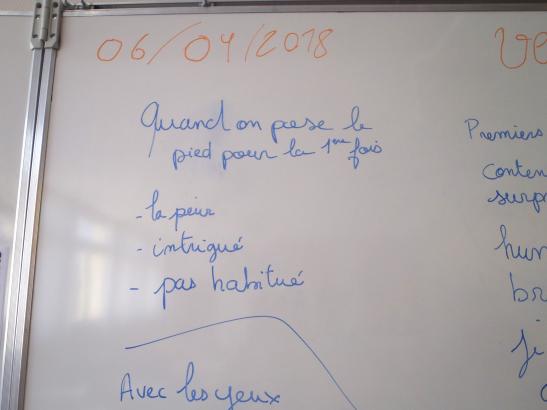 06/04/2018
Quand on pose le
pied pour la 1ère fois
- la peur
- intrigué
- pas habitué
Avec les yeux
Premiers